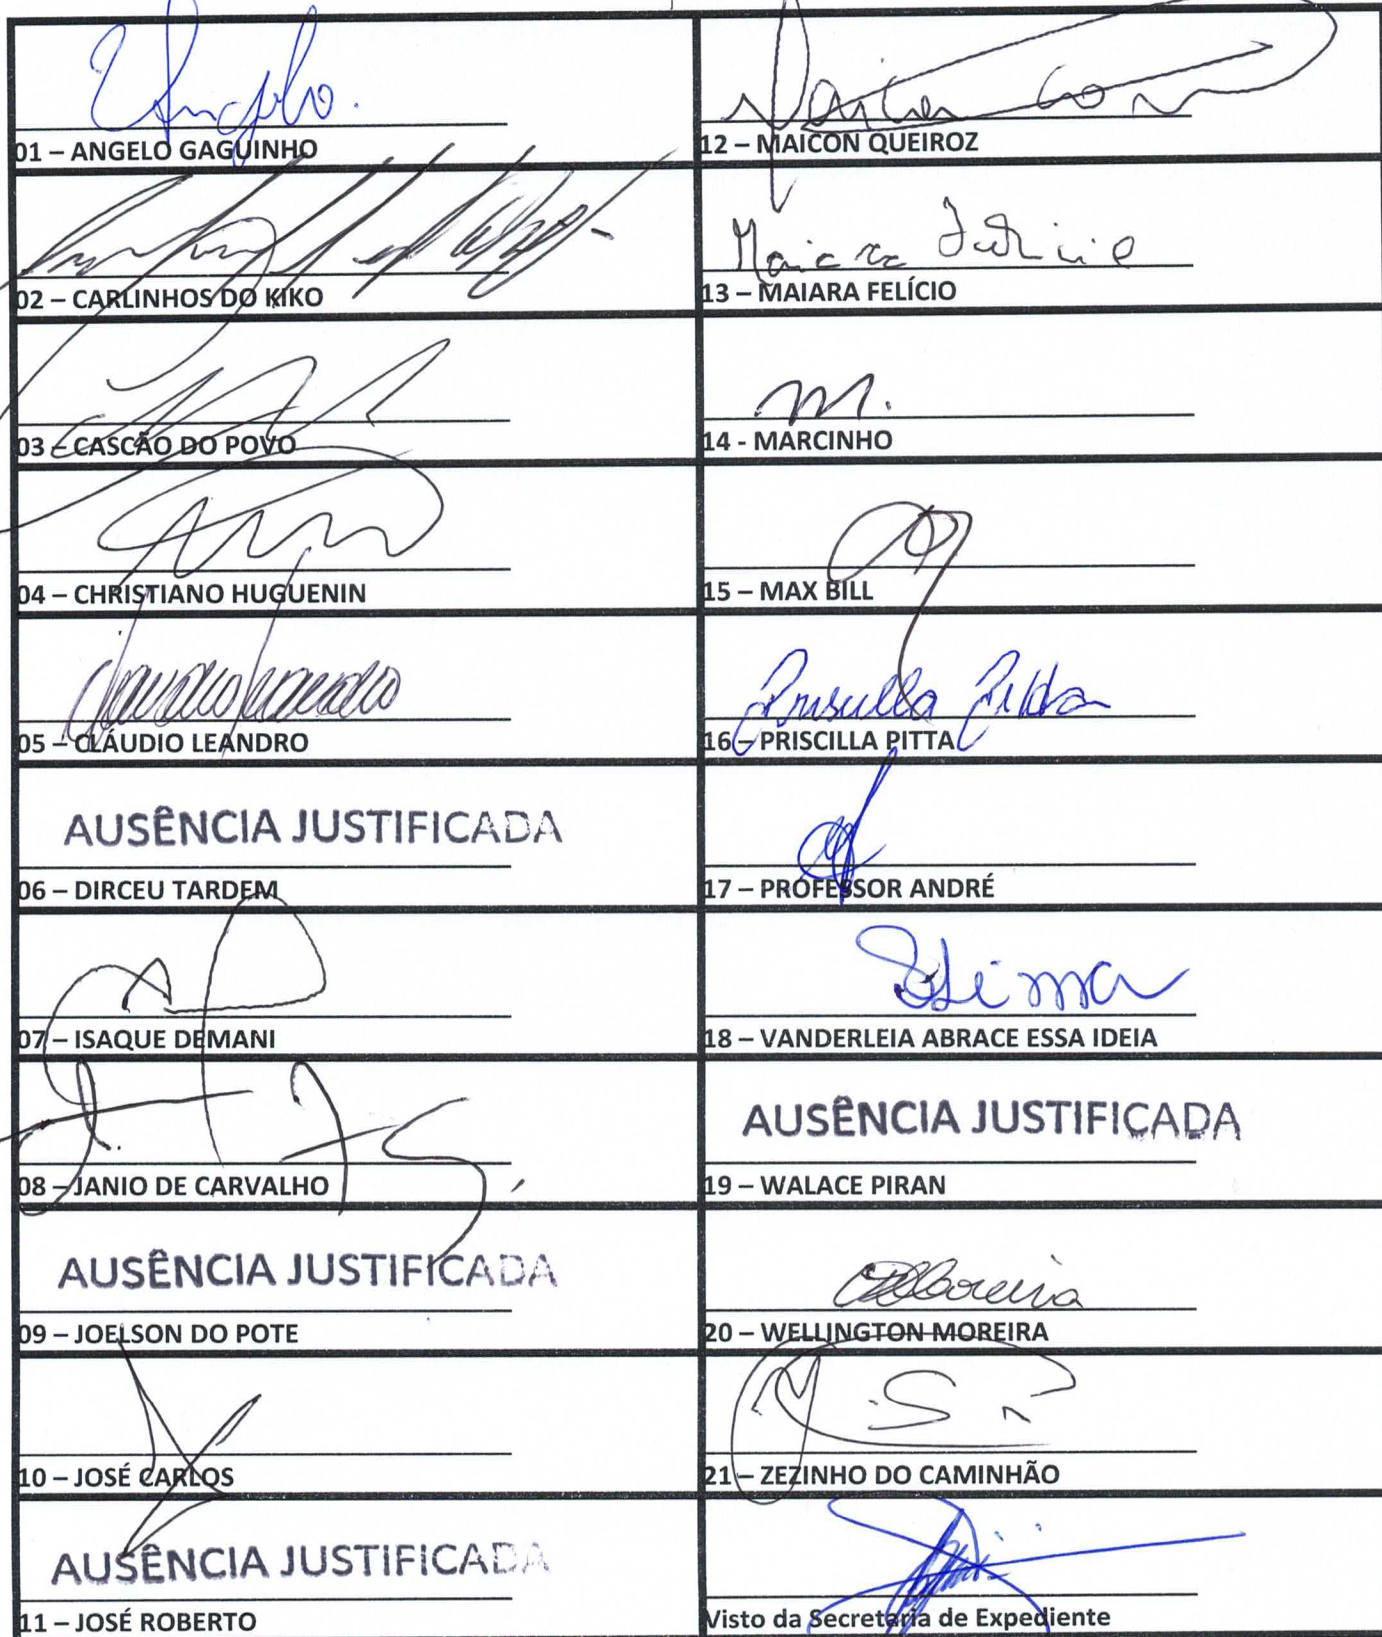 Angelo.
01 – ANGELO GAGUINHO
02 – CARLINHOS DO KIKO
03 – CASCÃO DO POVO
04 – CHRISTIANO HUGUENIN
05 – CLÁUDIO LEANDRO
AUSÊNCIA JUSTIFICADA
06 – DIRCEU TARDEM
07 – ISAQUE DEMANI
08 – JANIO DE CARVALHO
AUSÊNCIA JUSTIFICADA
09 – JOELSON DO POTE
10 – JOSÉ CARLOS
AUSÊNCIA JUSTIFICADA
11 – JOSÉ ROBERTO
12 – MAICON QUEIROZ
Maiara Felicio
13 – MAIARA FELÍCIO
M.
14 - MARCINHO
15 – MAX BILL
Priscilla Pitta
16 – PRISCILLA PITTA
17 – PROFESSOR ANDRÉ
18 – VANDERLEIA ABRACE ESSA IDEIA
AUSÊNCIA JUSTIFICADA
19 – WALACE PIRAN
20 – WELLINGTON MOREIRA
21 – ZEZINHO DO CAMINHÃO
Visto da Secretaria de Expediente